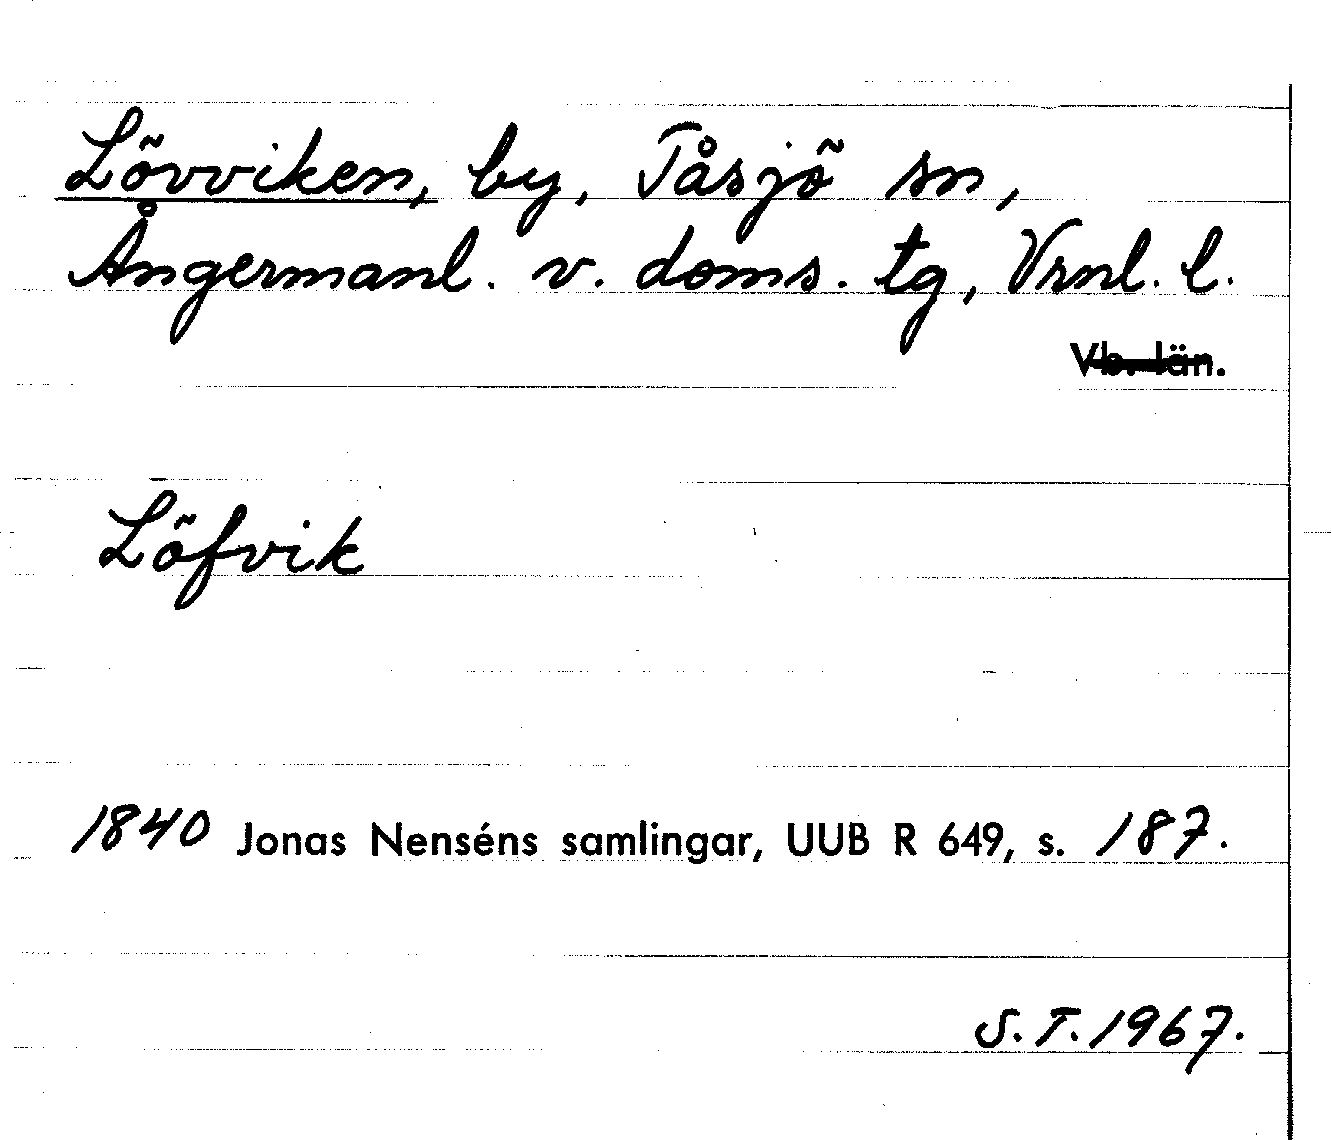 Lövviken, by, Tåsjö sn,
Ångermanl. v. doms. tg, Vrnl. l.
Vb. län.
Löfvik
1840 Jonas Nenséns samlingar, UUB R 649, s. 187.
S.T. 1967.